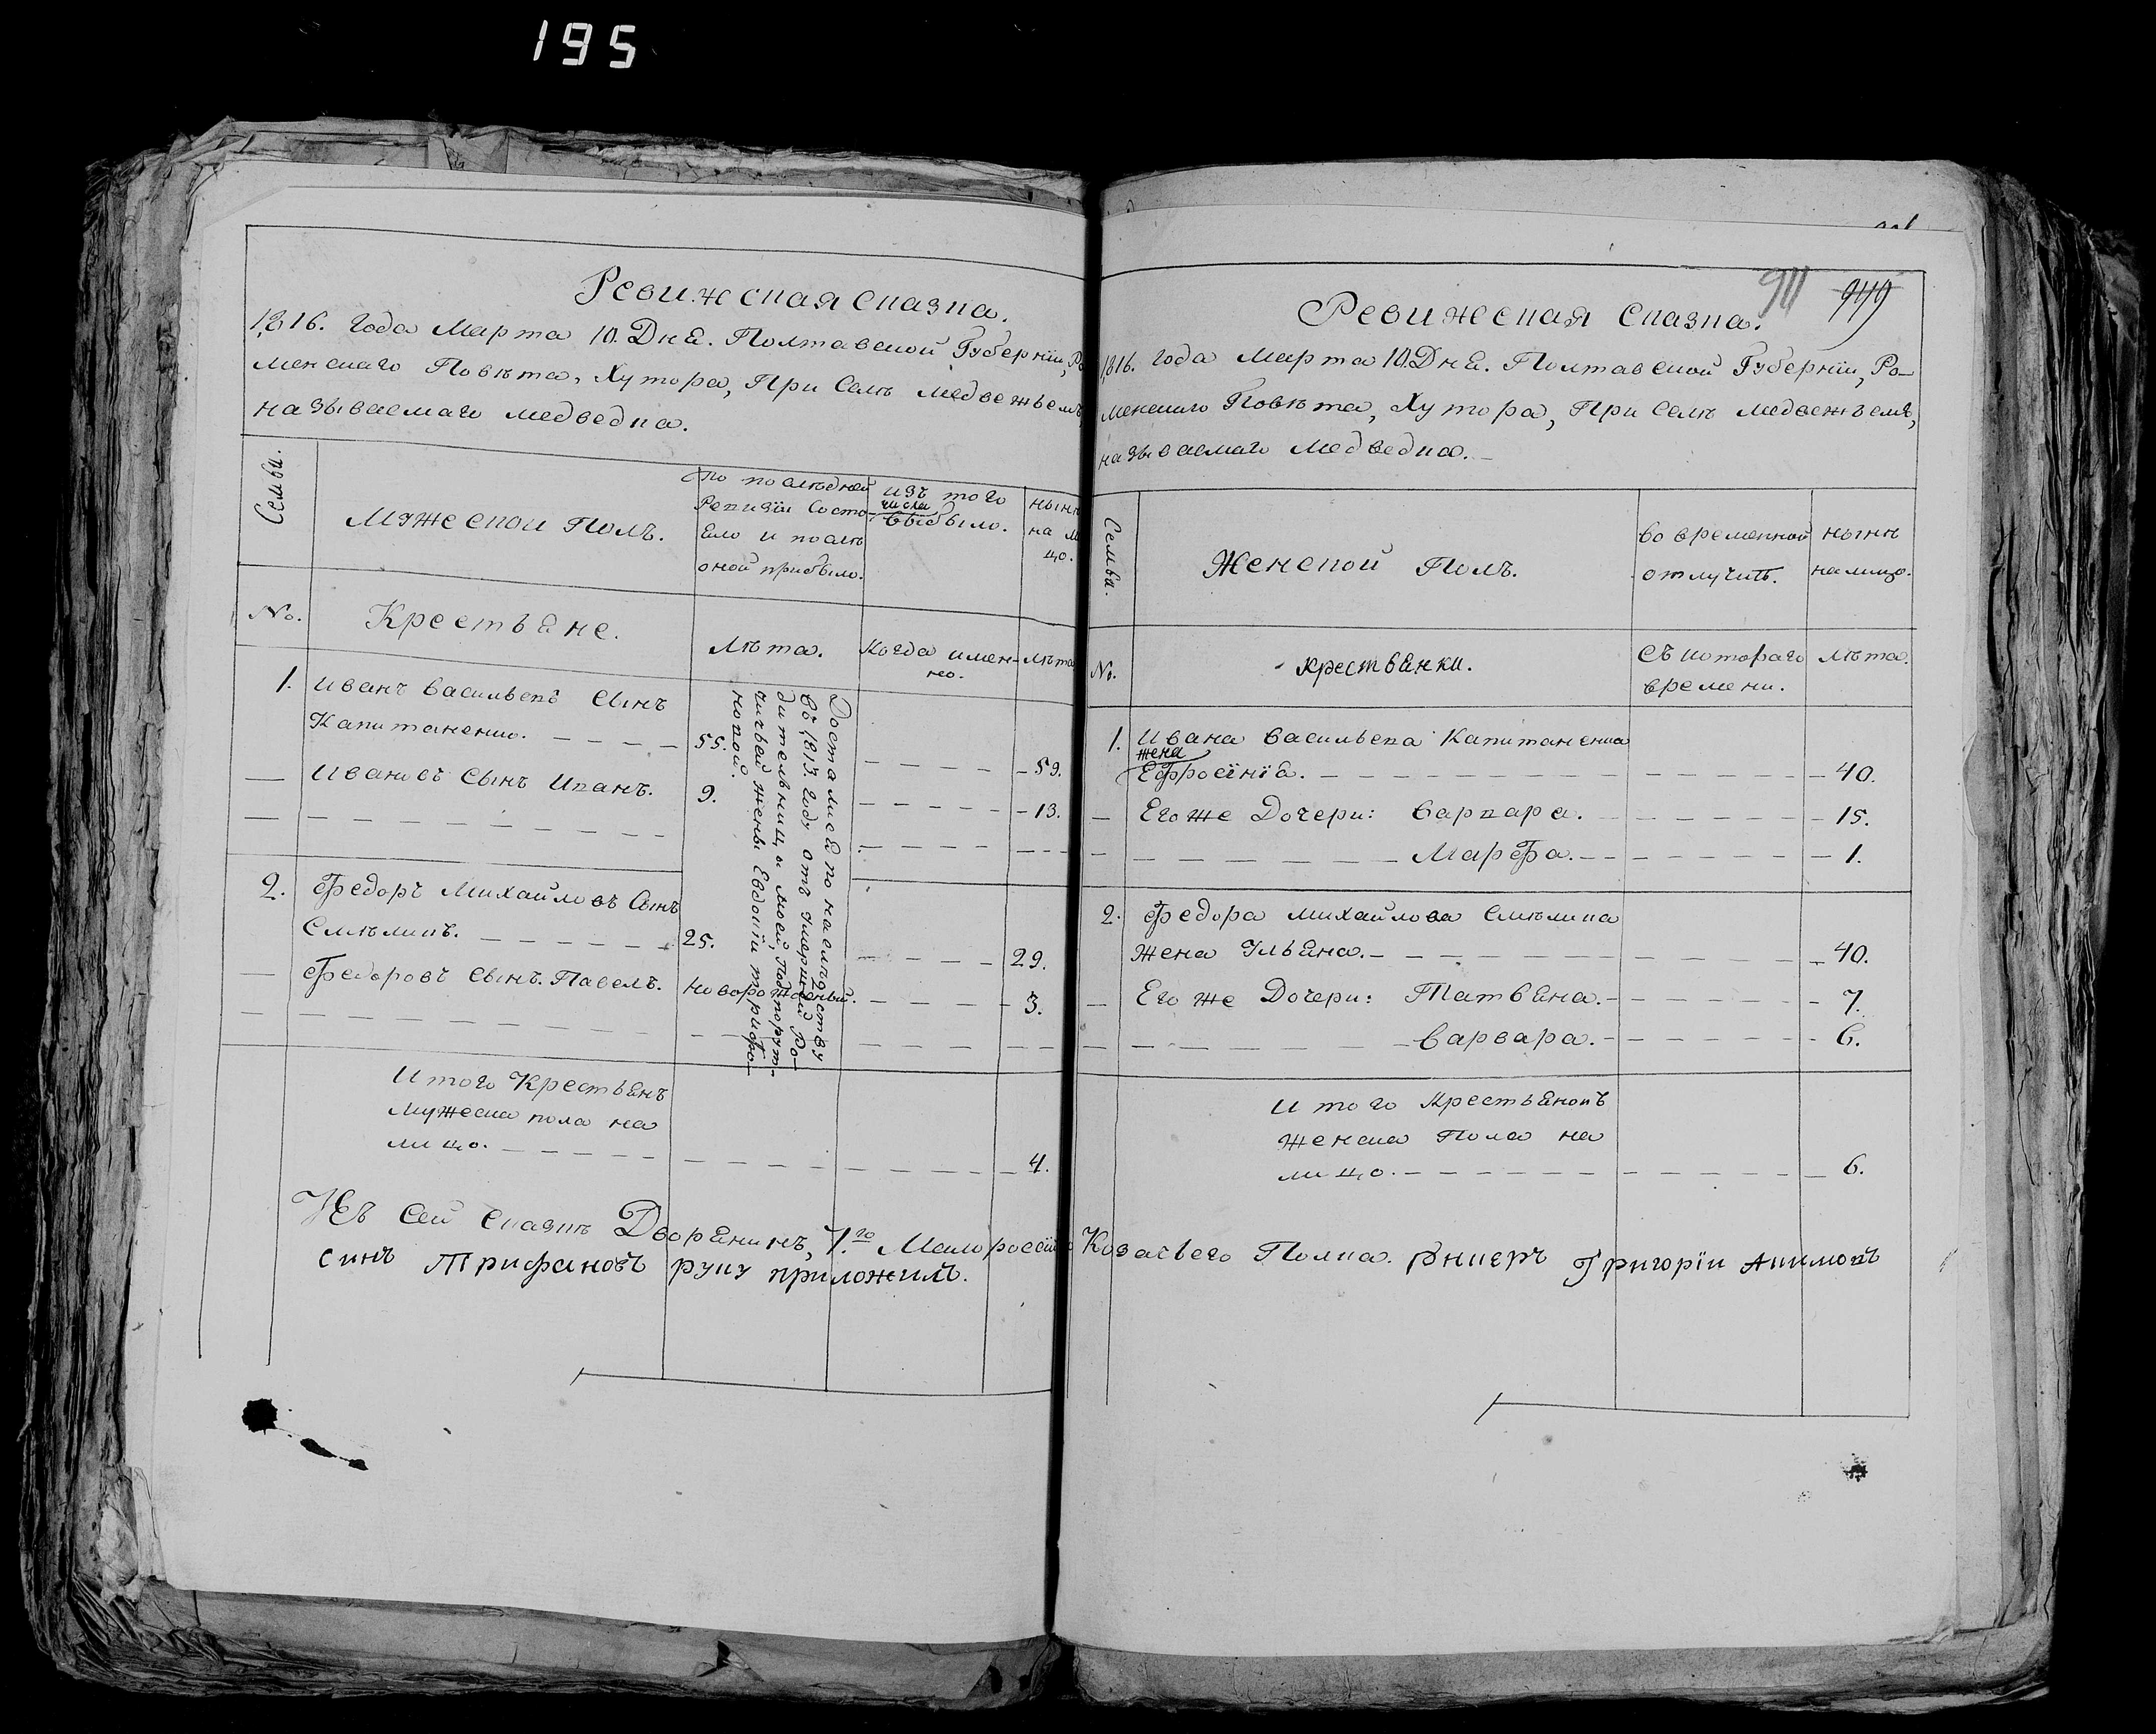 195
Ревижская сказка.
1816. года Марта 10. Дня. Полтавской Губернїи, Ро
менскаго Повѣта, Хутора, При Селѣ Медвежьемъ,
называемаго Медведка.
Семьи.
Мужеской Полъ.
По послѣдней
Ревизїи Состо
яло и послѣ
оной прибыло.
изъ того
числа
выбыло.
нынѣ
на ли
цо.
No.
Крестьяне.
Лѣта.
Когда имен-
но.
Лѣта
1. Иванъ Васильевъ Сынъ
Капитаненко. 55. 59.
Ивановъ Сынъ Иванъ. 9. 13.
2. Федоръ Михайловъ Сынъ
Смѣликъ. 25. 29.
Федоровъ Сынъ. Павелъ. Новорожденый. 3.
Досталися по наслѣдству
въ 1813. году отъ умершей Ро-
дительницы моей, Подпорут-
чичьей жены Евдокїи Трифо-
новой.
Итого Крестьянъ
Мужеска пола на
лицо. 4.
911 949
Ревижская Сказка.
1816. года Марта 10. Дня. Полтавской Губернїи, Ро-
менскаго Повѣта, Хутора, При Селѣ Медвежьемъ,
называемаго Медведка.
Семьи.
Женской Полъ.
во временной
отлучкѣ.
нынѣ
налицо.
No.
крестьянки.
съ котораго
времени.
лѣта.
1. Ивана Васильева Капитаненка
жена
Ефросїнїя. 40.
Его же Дочери: Варвара. 15.
Марфа. 1.
2. Федора Михайлова Смѣлика
жена Ульяна. 40.
Его же Дочери: Татьяна. 7.
Варвара. 6.
Итого Крестьянокъ
Женска Пола на
лицо. 6.
Къ Сей Сказкѣ Дворянинъ, 1.го Малороссїйскаго Козачьего Полка. Григорїи Акимовъ
синъ Трифановъ руку приложилъ.